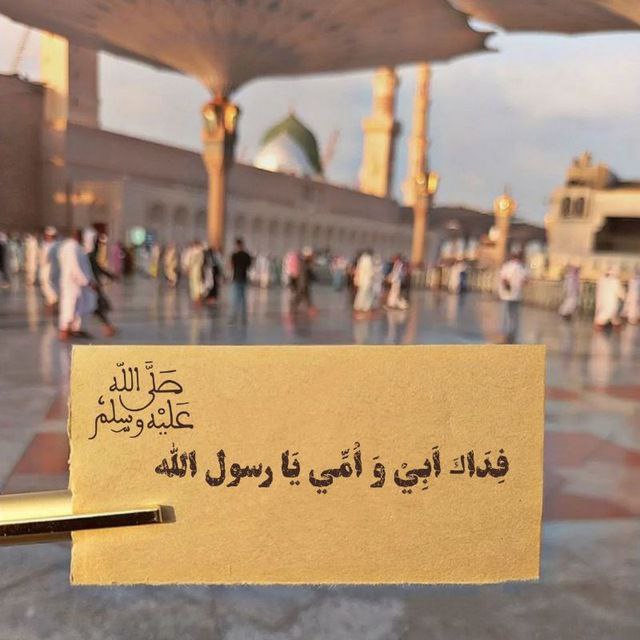 صَلَّى اللّٰه
عَلَيْهِ وَسِلَّمَ
فِدَاكَ اَبِيْ وَ اُمِّي يَا رسول الله